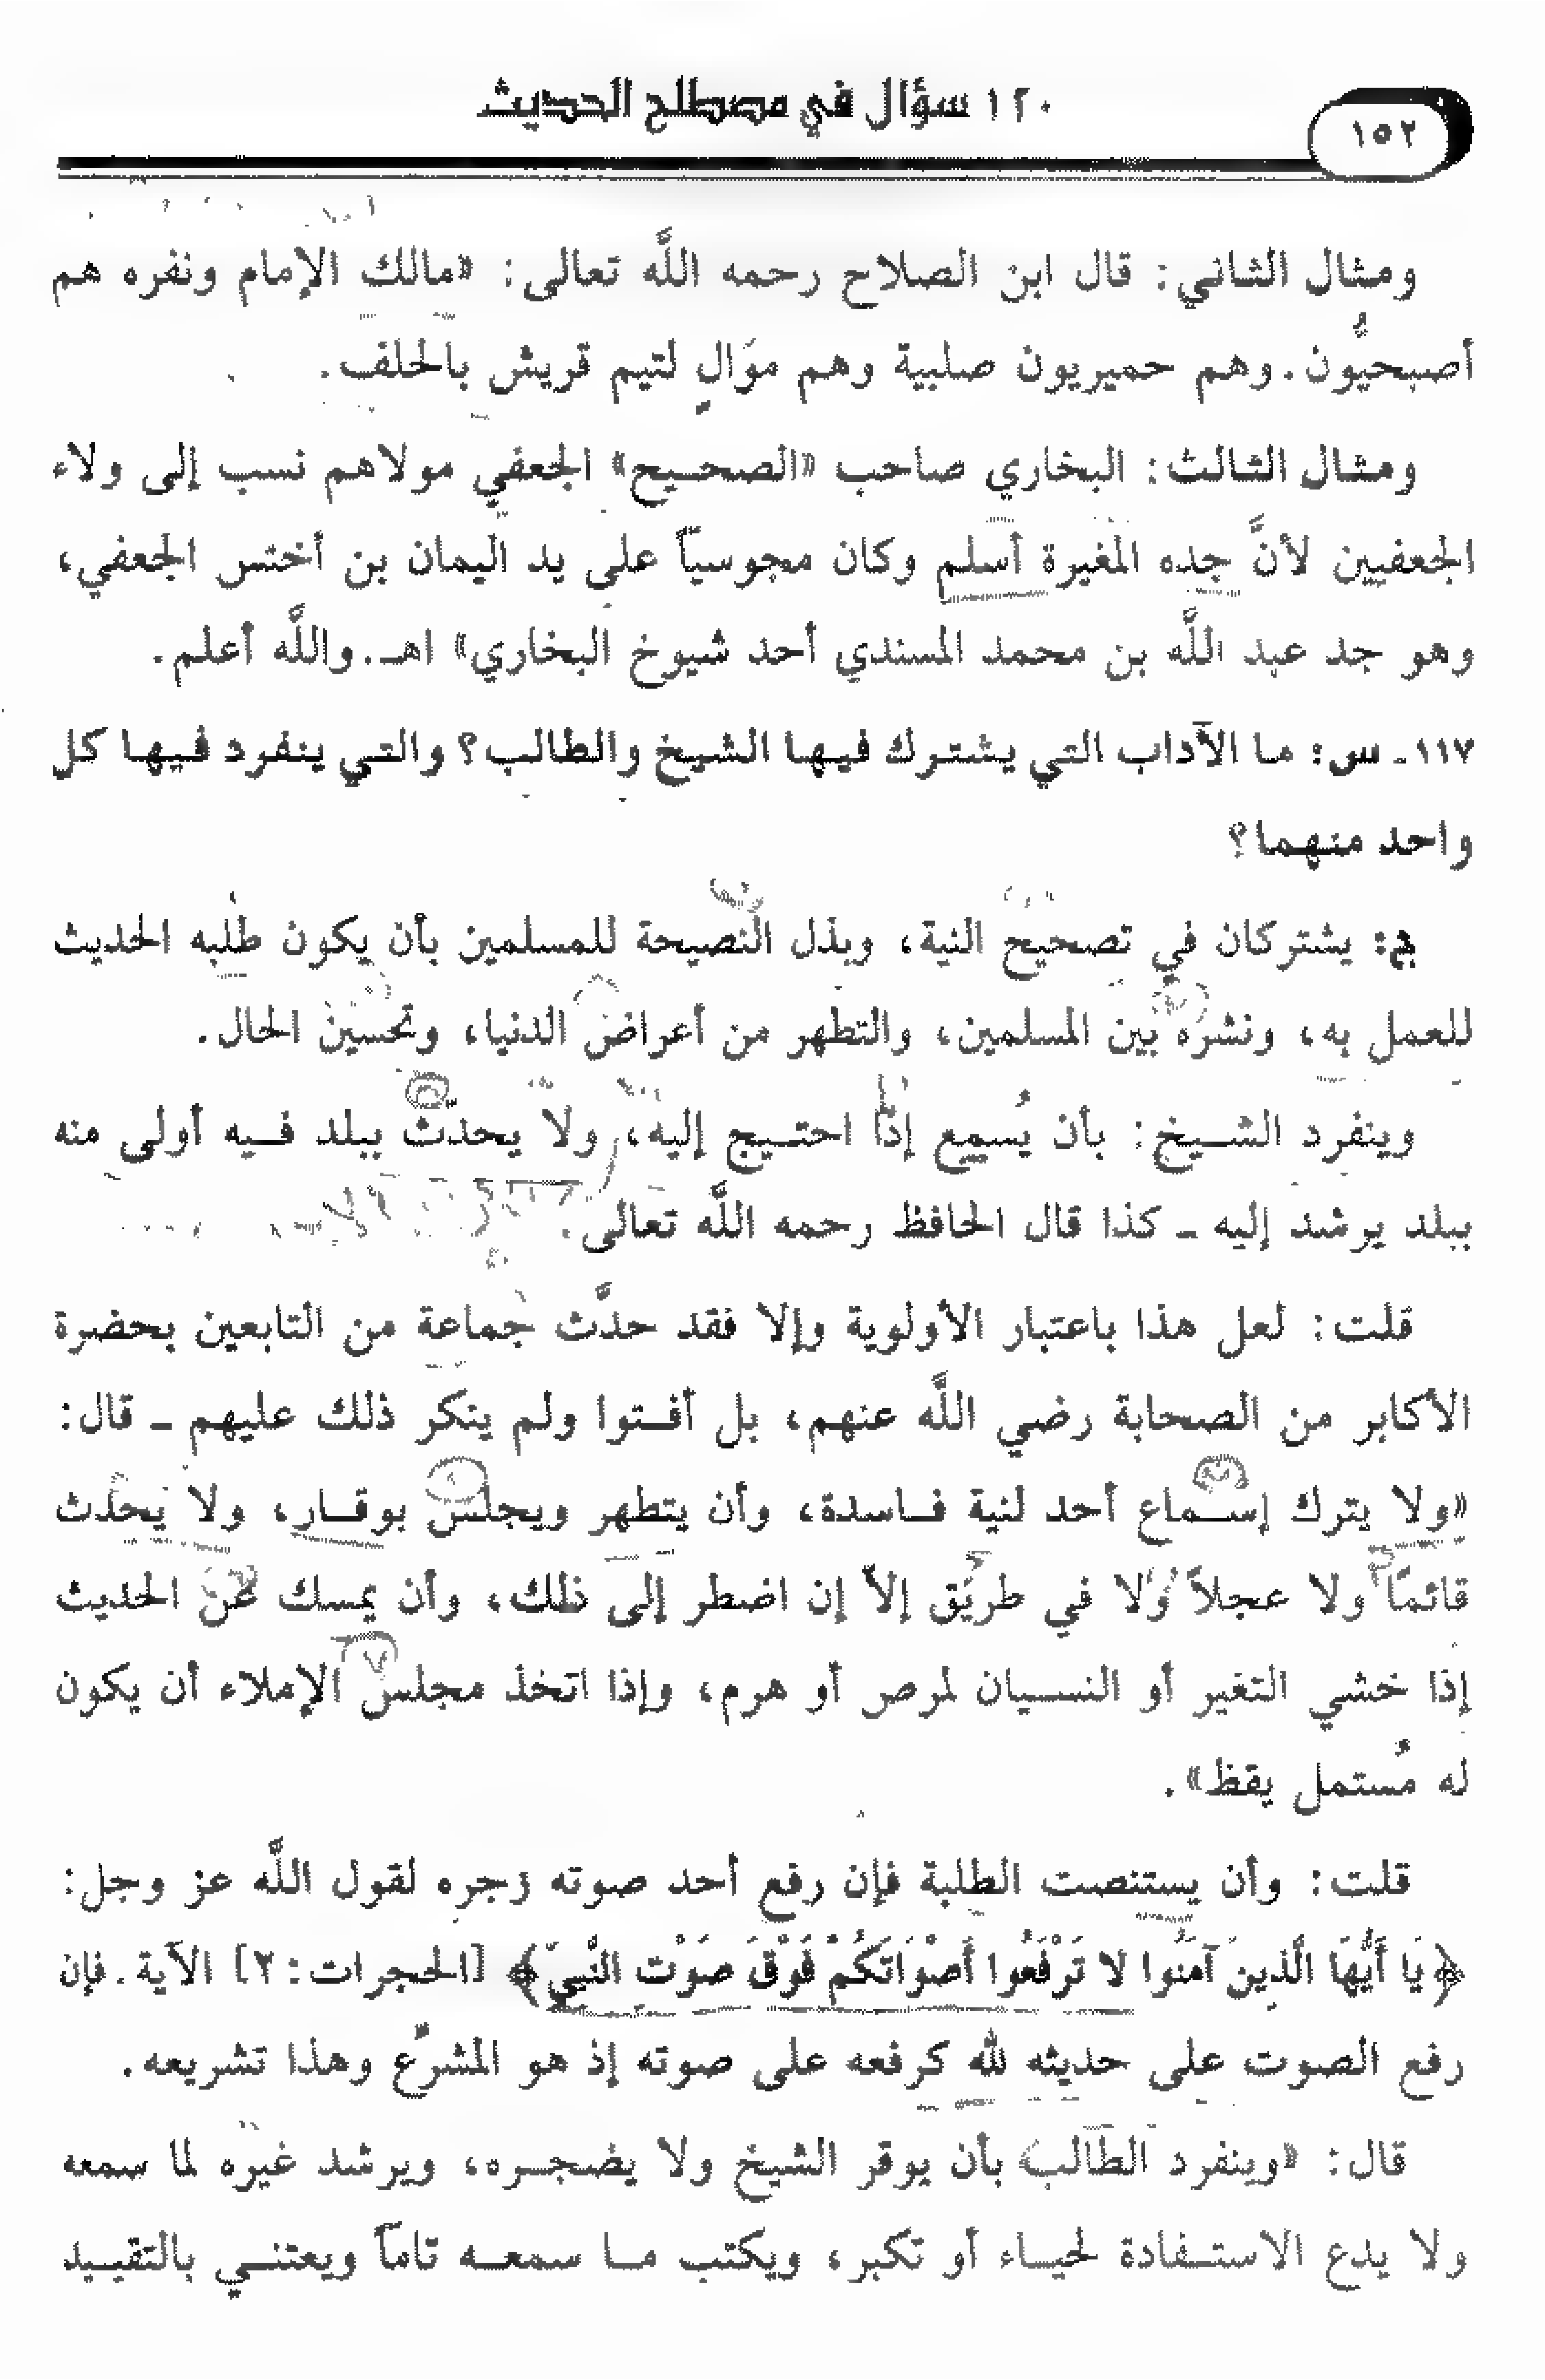 ١٢٠ سؤال في مصطلح الحديث
١٥٢
ومثال الثاني: قال ابن الصلاح رحمه اللَّه تعالى: «مالك الإمام ونفره هم
أصبحيُّون. وهم حميريون صلبية وهم موَالٍ لتيم قريش بالحلف.
ومثال الثالث: البخاري صاحب «الصحيح» الجعفي مولاهم نسب إلى ولاء
الجعفيين لأنَّ جده المغيرة أسلم وكان مجوسياً على يد اليمان بن أختس الجعفي،
وهو جد عبد اللَّه بن محمد المسندي أحد شيوخ البخاري» اهـ. واللَّه أعلم.
١١٧ـ س: ما الآداب التي يشترك فيها الشيخ والطالب؟ والتي ينفرد فيها كل
واحد منهما؟
ج: يشتركان في تصحيح النية، وبذل النصيحة للمسلمين بأن يكون طلبه الحديث
للعمل به، ونشره بين المسلمين، والتطهر من أعراض الدنيا، وتحسين الحال.
وينفرد الشيخ: بأن يُسمع إذا احتيج إليه، ولا يحدث ببلد فيه أولى منه
ببلد يرشد إليه ـ كذا قال الحافظ رحمه اللَّه تعالى.
قلت: لعل هذا باعتبار الأولوية وإلا فقد حدَّث جماعة من التابعين بحضرة
الأكابر من الصحابة رضي اللَّه عنهم، بل أفتوا ولم ينكر ذلك عليهم ـ قال:
«ولا يترك إسماع أحد لنية فاسدة، وأن يتطهر ويجلس بوقار، ولا يحدث
قائمًا ولا عجلاً ولا في طريق إلاّ إن اضطر إلى ذلك، وأن يمسك عن الحديث
إذا خشي التغير أو النسيان لمرص أو هرم، وإذا اتخذ مجلس الإملاء أن يكون
له مُستمل يقظ».
قلت: وأن يستنصت الطلبة فإن رفع أحد صوته زجره لقول اللَّه عز وجل:
﴿يَا أَيُّهَا الَّذِينَ آمَنُوا لا تَرْفَعُوا أَصْوَاتَكُمْ فَوْقَ صَوْت النَّبِيّ﴾ [الحجرات: ٢] الآية. فإن
رفع الصوت على حديثه لله كرفعه على صوته إذ هو المشرّع وهذا تشريعه.
قال: «وينفرد الطالب» بأن يوقر الشيخ ولا يضجره، ويرشد غيره لما سمعه
ولا يدع الاستفادة لحياء أو تكبر، ويكتب ما سمعه تاماً ويعتني بالتقييد